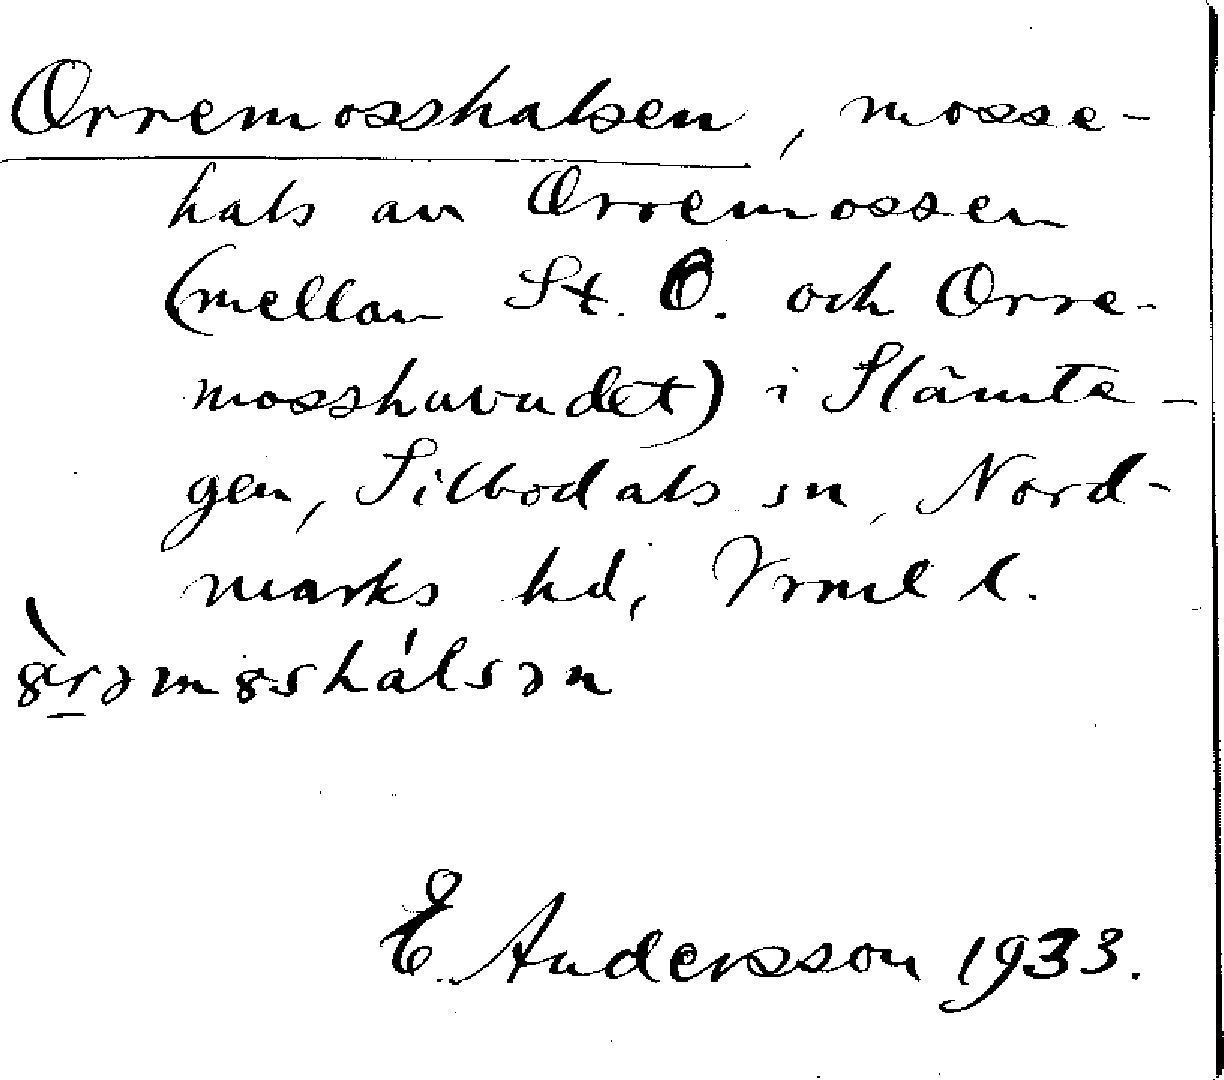 Orremosshalsen, mosse-
hals av Orremossen
(mellan St. O. och Orre-
mosshuvudet) i Slämte-
gen, Silbodals sn, Nord-
marks hd, Vrml l.
E. Andersson 1933.